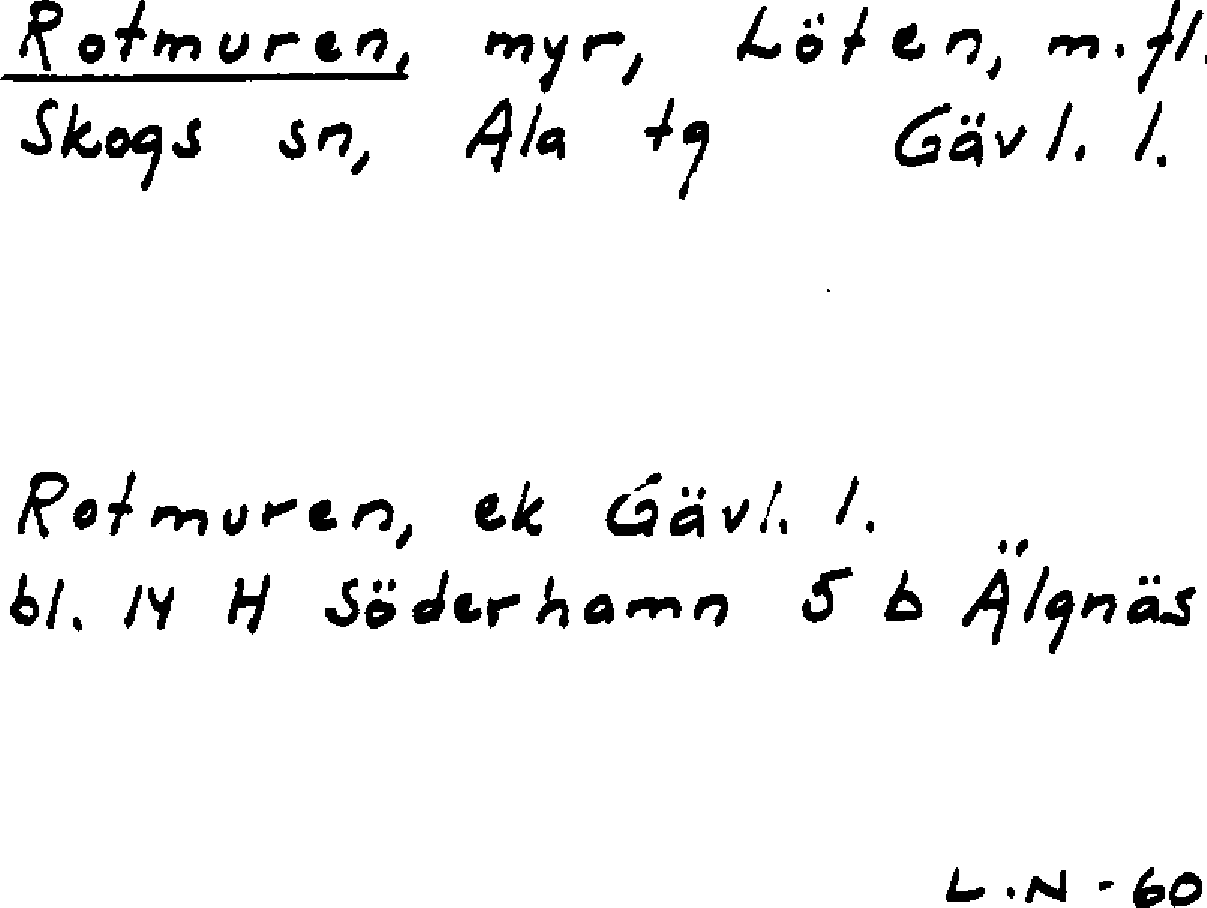 Rotmuren, myr, Löten, m.fl.
Skogs sn, Ala tg Gävl. l.
Rotmuren, ek Gävl. l.
bl. 14 H Söderhamn 5 b Älgnäs
L.N - 60